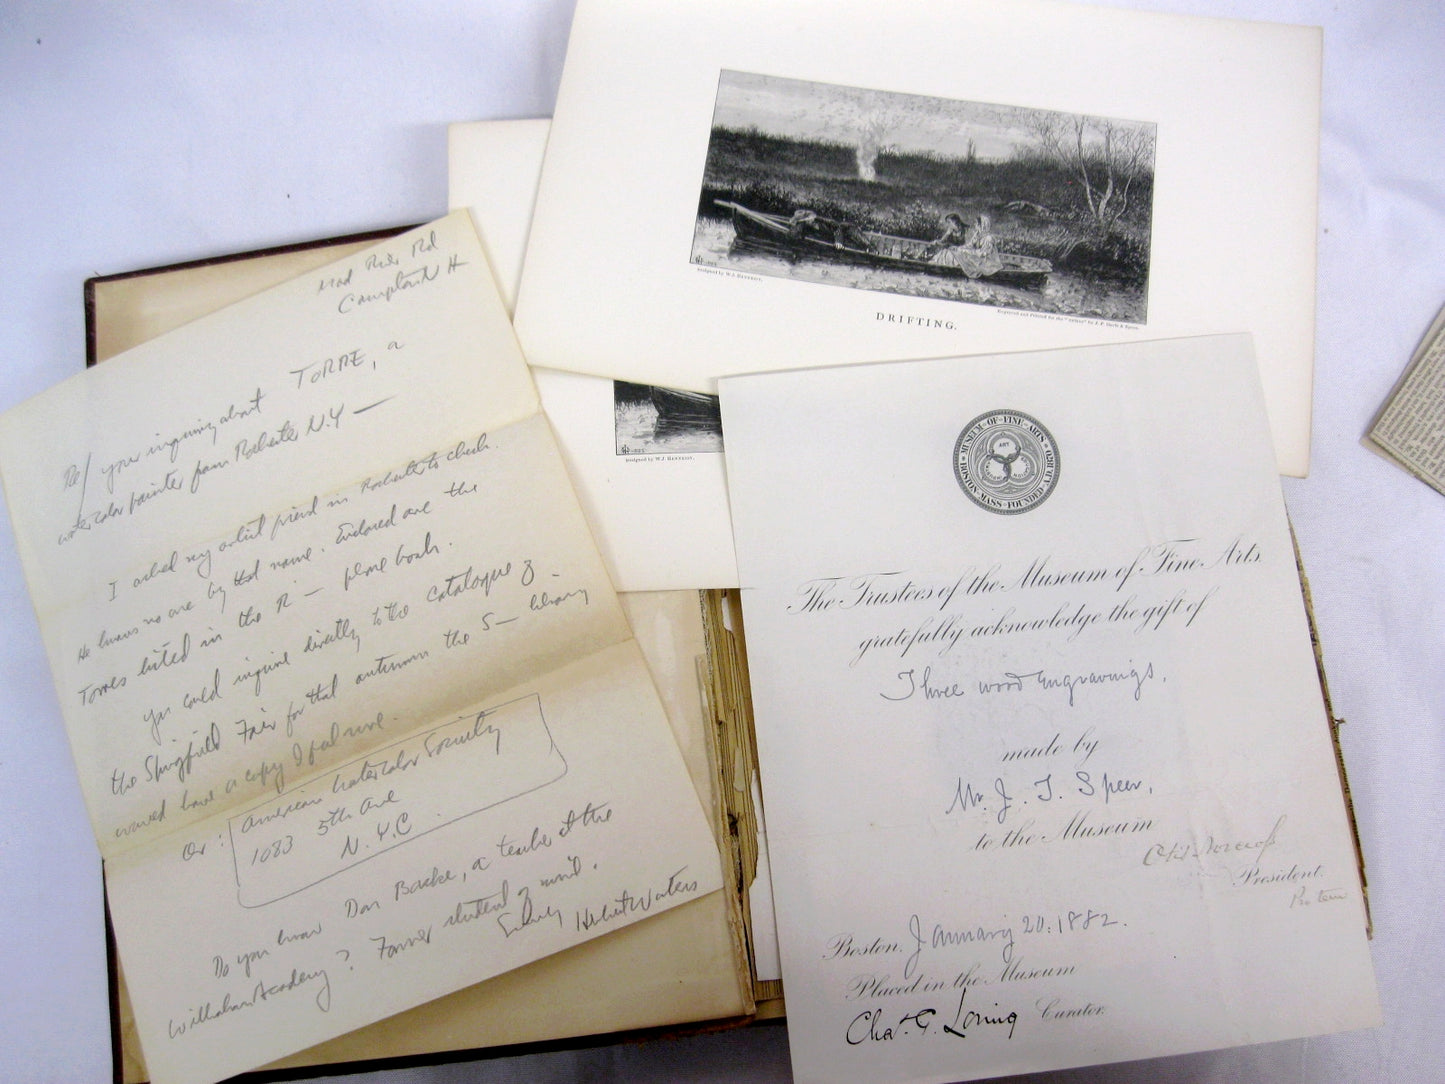 Mad River Rd
Campton N H
Re/ your inquiry about TORRE, a
watercolor painter from Rochester N.Y —
I asked my artist friend in Rochester to check.
He knows no one by that name. Enclosed are the
Torres listed in the R — phone book.
You could inquire directly to the catalogue of
the Springfield Fair for that autumn the S — library
would have a copy I feel sure.
Or: American Watercolor Society
1083 5th Ave
N.Y.C.
Do you know Don Barke, a teacher at the
Wilbraham Academy? Former student of mine.
Herbert Waters
Designed by W.J. HENNESSY.
Engraved and Printed for the
DRIFTING.
Designed by W.J. HENNESSY.
MUSEUM·OF·FINE·ARTS
BOSTON·MASS·FOUNDED
ART
The Trustees of the Museum of Fine Arts.
gratefully acknowledge the gift of
Three wood engravings,
made by
Mr. J. T. Speer,
to the Museum
Otis Norcross
President.
Pro tem
Boston, January 20. 1882.
Placed in the Museum
Chas. G. Loring Curator.